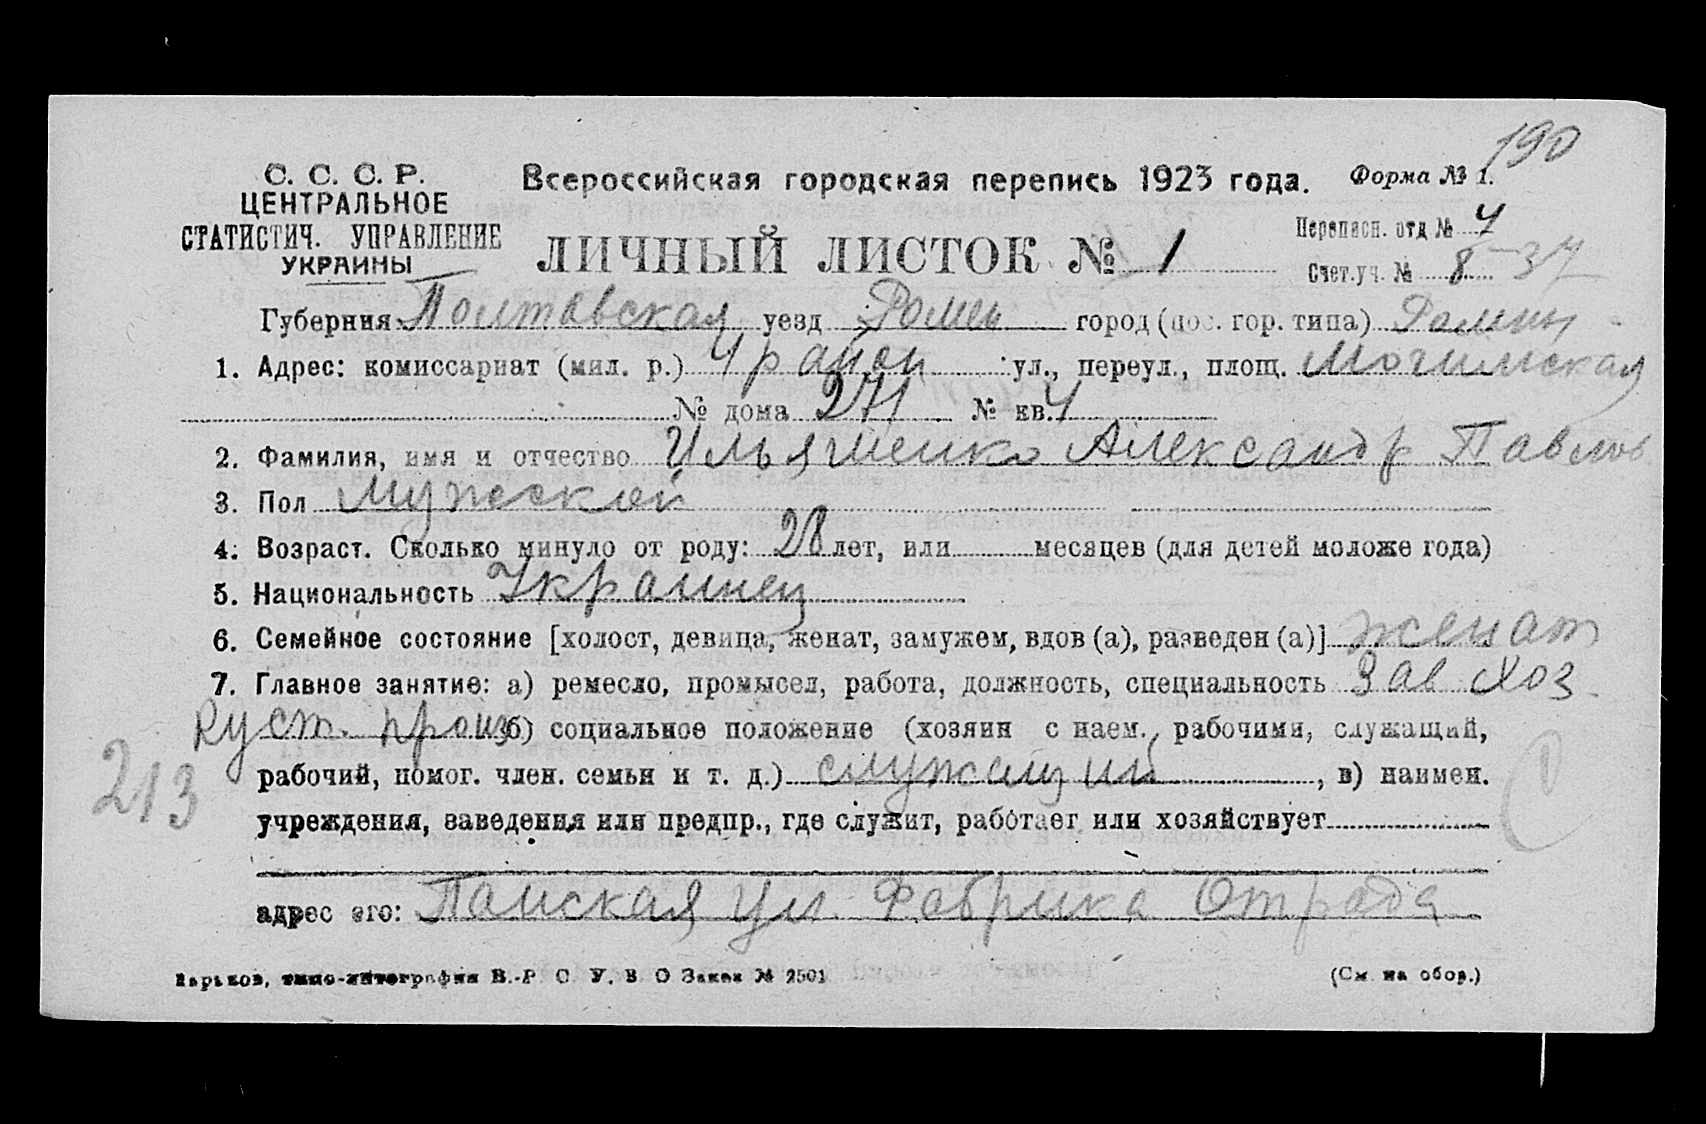 190
С. С. С. Р.
ЦЕНТРАЛЬНОЕ
СТАТИСТИЧ. УПРАВЛЕНИЕ
УКРАИНЫ
Всероссийская городская перепись 1923 года. Форма № 1.
ЛИЧНЫЙ ЛИСТОК № 1
Переписн. отд № 4
Счет. уч. № 8-37
Губерния Полтавская уезд Ромен город (пос. гор. типа) Ромны
1. Адрес: комиссариат (мил. р.) 4 район ул., переул., площ. Могилмская
№ дома 271 № кв. 4
2. Фамилия, имя и отчество Ильяшенко Александр Павлов
3. Пол мужской
4. Возраст. Сколько минуло от роду: 28 лет, или месяцев (для детей моложе года)
5. Национальность Украинец
6. Семейное состояние [холост, девица, женат, замужем, вдов (а), разведен (а)] женат
7. Главное занятие: а) ремесло, промысел, работа, должность, специальность Зав Хоз
куст. произ б) социальное положение (хозяин с наем. рабочими, служащий,
213
рабочий, помог. член. семьи и т. д.) служащий, в) наимен.
учреждения, заведения или предпр., где служит, работает или хозяйствует
адрес его: ул. Фабрика Отрада
Харьков, типо-литография В.-Р С. У. В О Заказ № 2501
(См. на обор.)